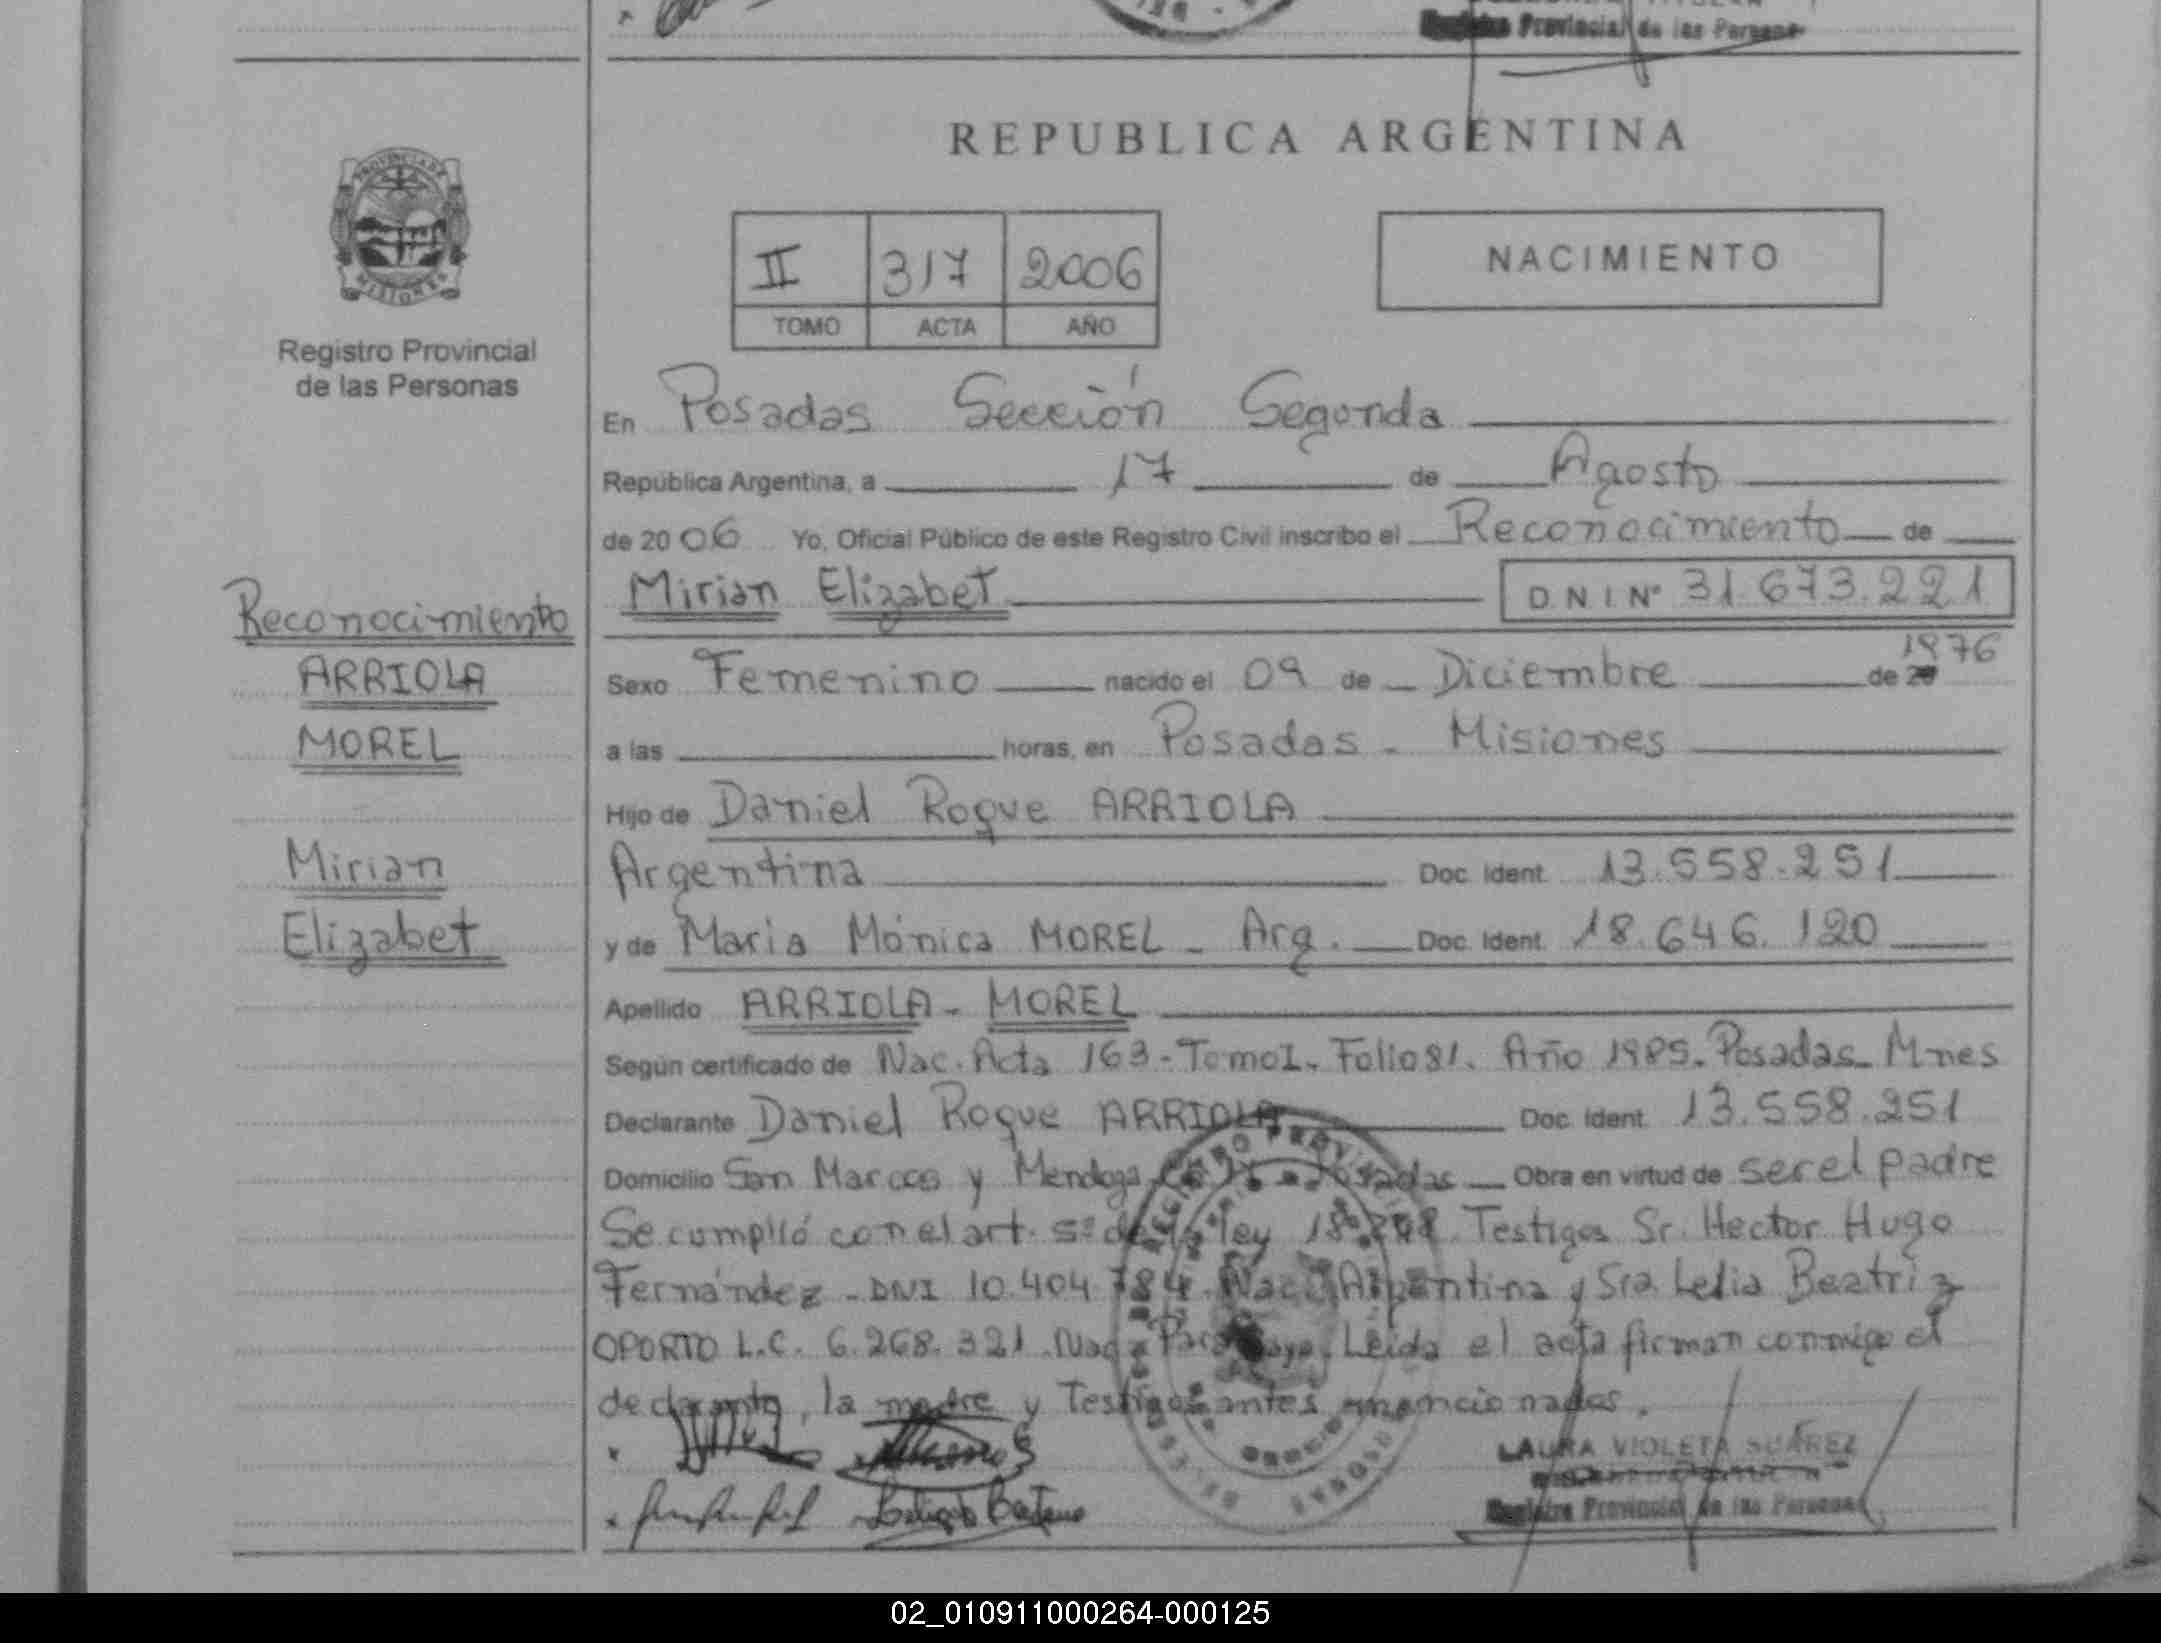 Registro Provincial de las Personas
REPUBLICA ARGENTINA
PROVINCIA DE
MISIONES
Registro Provincial
de las Personas
II 317 2006
TOMO ACTA AÑO
NACIMIENTO
En Posadas Sección Segunda
República Argentina, a 17 de Agosto
de 2006 Yo, Oficial Público de este Registro Civil inscribo el Reconocimiento de
Mirian Elizabet DNI Nº 31.673.221
Reconocimiento
ARRIOLA
MOREL
Mirian
Elizabet
Sexo Femenino nacido el 09 de Diciembre de 1976
a las horas, en Posadas - Misiones
Hijo de Daniel Roque ARRIOLA
Argentina Doc. Ident. 13.558.251
y de Maria Mónica MOREL - Arg. Doc. Ident. 18.646.120
Apellido ARRIOLA - MOREL
Según certificado de Nac. Acta 163 - Tomo I. Folio 81. Año 1985. Posadas - Mnes
Declarante Daniel Roque ARRIOLA Doc. Ident. 13.558.251
Domicilio San Marcos y Mendoza Posadas Obra en virtud de ser el padre
Se cumplió con el art. 5º de la ley 18.248. Testigos Sr. Hector Hugo
Fernández - DNI 10.404.784. Nac. Argentina y Sra. Ledia Beatriz
OPORTO L.C. 6.268.321. Nac. Paraguaya. Leida el acta firman conmigo el
declarante, la madre y Testigos antes mencionados.
LAURA VIOLETA SUÁREZ
Registro Provincial de las Personas
02_010911000264-000125